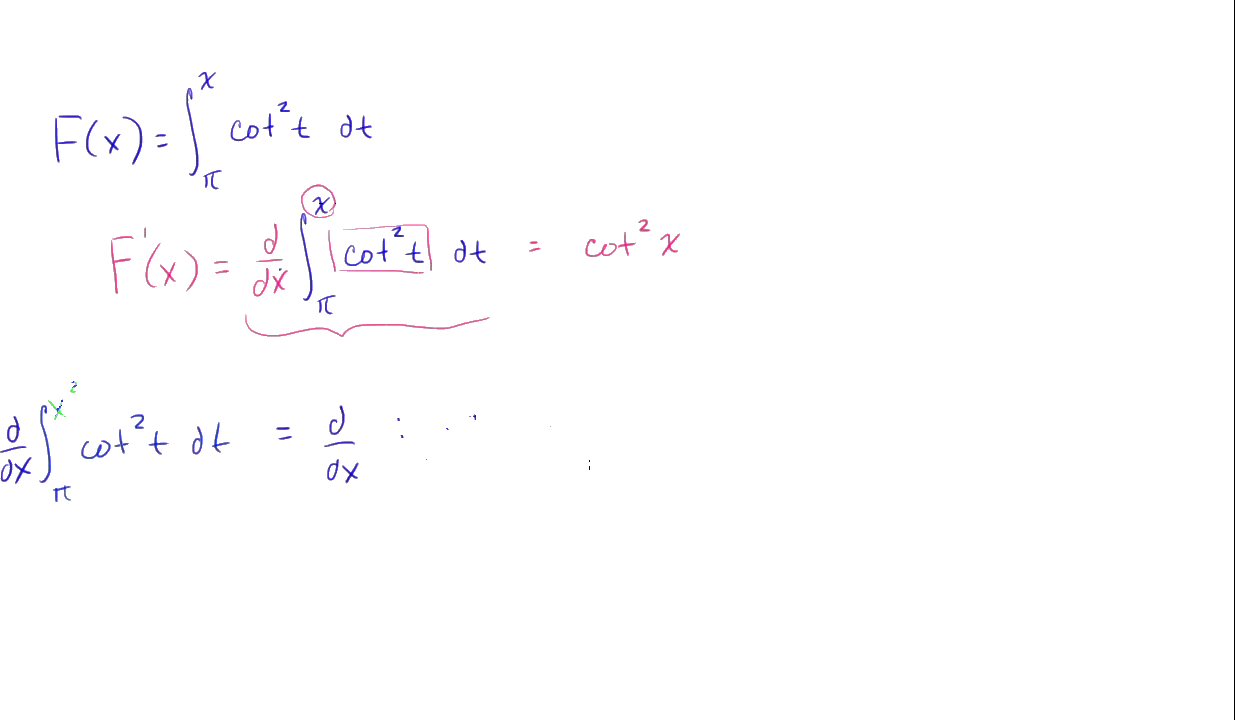 F(x) = ∫_π^x cot²t dt
F'(x) = d/dx ∫_π^x cot²t dt = cot²x
d/dx ∫_π^x² cot²t dt = d/dx